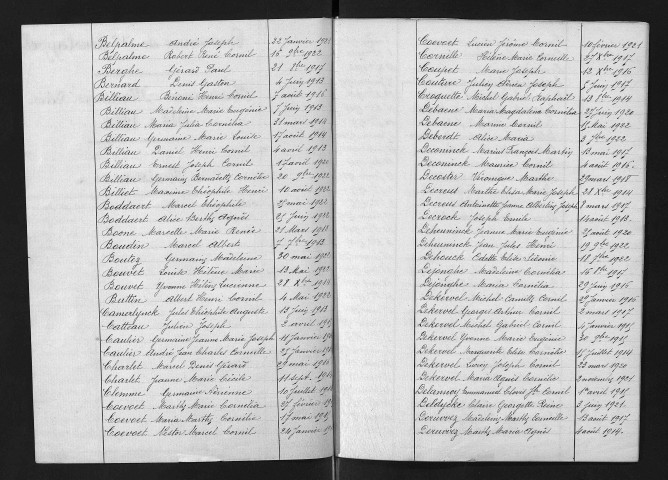 Belpalme André Joseph 22 Janvier
Belpalme Robert René Cornil 15 9bre 1922
Berghe Gérard Paul 21 8bre 1917
Bernard Denis Gaston 4 Juin 1913
Billiau Benoni Henri Cornil 7 août 1916
Billiau Madeleine Marie Eugénie 7 Juin 1913
Billiau Maria Julia Cornélia 31 mars 1914
Billiau Germaine Marie Louise 17 août 1914
Billiau Daniel Henri Cornil 4 avril 1913
Billiau Ernest Joseph Cornil
Billiau Germaine Bernadette Cornélie 20 9bre
Billiet Maxime Théophile Henri 10 août 1922
Boddaert Marcel Théophile mai 1922
Boddaert Alice Berthe Agnès 25 Juin
Boone Marcelle Marie Renée 21 Mars 1913
Boudin Marcel Albert 7 7bre 1913
Boutez Germaine Madeleine 20 mai
Bouvet Louise Hélène Marie 12 Mai
Bouvet Yvonne Hélène Lucienne 28 Xbre
Buttin Albert Henri Cornil 4 Mai
Camerlynck Jules Théophile Auguste 13 Juin
Catteau Julien Joseph 2 avril
Caulier Germaine Jeanne Marie Joseph 11 Janvier
Caulier André Jean Charles Corneille 25 Janvier
Charlet Marcel Denis Gérard 29 mai
Charlet Jeanne Marie Cécile 11 sept.
Clemme Germaine 10 Juillet
Coevoet Marthe Marie Cornélia février
Coevoet Maria Marthe Cornélie 17 mai
Coevoet Nestor Marcel Cornil 24 Janvier
Coevoet Lucien Jérôme Cornil 10 février 1921
Cornille Hélène Marie Corneille 27 Xbre 1917
Coupet Marie Joseph 12 Xbre 1916
Couture Julien Joseph 5 Juin 1917
Croquette Michel Gabriel Raphaël 13 8bre 1914
Debaene Maria Magdalena Cornélia 27 Juin 1920
Debaene Marine Cornil Mai 1922
Deberdt Alice Maria 3 7bre 1922
Deconinck Marius François Martin mai 1917
Deconinck Maurice Cornil 4 août 1916
Decoster Véronique Marthe 29 mars 1918
Decreus Marthe Elisa Marie Joseph 28 Xbre 1914
Decreus Antoinette Jeanne Albertine Joseph 8 mars 1917
Decrock Joseph Emile 14 août 1913
Deheunninck Jeanne Marie Eugénie août 1920
Deheunninck Jean Jules Henri 19 9bre 1922
Dehouck Odette Elise Léonie 18 7bre 1922
Dejonghe Madeleine Cornélia 16 8bre 1917
Dejonghe Maria Cornélia 29 Juin 1916
Dekervel Michel Camille Cornil Janvier 1916
Dekervel Georges Arthur Cornil 2 mars 1917
Dekervel Michel Gabriel Cornil 4 Janvier 1915
Dekervel Yvonne Marie Eugénie 20 9bre 1915
Dekervel Marguerite Elise Cornélie 17 Juillet 1914
Dekervel Joseph Cornil 22 mars 1920
Dekervel Maria Agnès Cornélie 2 novembre 1921
Delannoy Emmanuel Cornil 1er avril 1917
Deldycke Claire Georgette Reine 3 Juin 1921
Deruwez Madeleine Marthe Corneille 13 août 1917
Deruwez Marthe Maria Agnès 4 août 1914